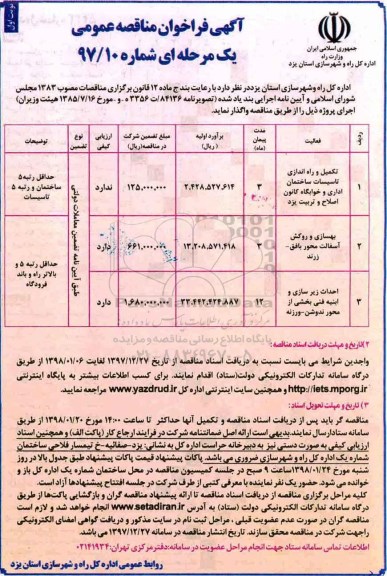 نوبت اول
آگهی فراخوان مناقصه عمومی
یک مرحله ای شماره ۹۷/۱۰
جمهوری اسلامی ایران
وزارت راه
اداره کل راه و شهرسازی استان یزد
اداره کل راه وشهرسازی استان یزددر نظر دارد با رعایت بند ج ماده ۱۲ قانون برگزاری مناقصات مصوب ۱۳۸۳ مجلس
شورای اسلامی و آیین نامه اجرایی بند یاد شده (تصویرنامه ۸۴۱۳۶/ت ۳۳۵۶۰ ه . و . مورخ ۱۳۸۵/۷/۱۶ هیئت وزیران)
اجرای پروژه ذیل را از طریق مناقصه واگذار نماید.
ردیف فعالیت مدت پیمان (ماه) برآورد اولیه (ریال) مبلغ تضمین شرکت در مناقصه(ریال) ارزیابی کیفی نوع تضمین توضیحات
۱ تکمیل و راه اندازی تاسیسات ساختمان اداری و خوابگاه کانون اصلاح و تربیت یزد ۳ ۲,۴۲۸,۵۲۷,۶۱۴ ۱۲۵,۰۰۰,۰۰۰ ندارد حداقل رتبه۵ ساختمان و رتبه ۵ تاسیسات
۲ بهسازی و روکش آسفالت محور بافق- زرند ۳ ۱۳,۲۰۸,۵۷۱,۴۱۸ ۶۶۱,۰۰۰,۰۰۰ دارد حداقل رتبه ۵ و بالاتر راه و باند فرودگاه
۳ احداث زیر سازی و ابنیه فنی بخشی از محور ندوشن-ورزنه ۱۲ ۳۳,۴۴۲,۴۲۴,۸۸۷ ۱,۶۸۰,۰۰۰,۰۰۰ دارد
طبق آیین نامه تضمین معاملات دولتی
۲)تاریخ و مهلت دریافت اسناد مناقصه:
واجدین شرایط می بایست نسبت به دریافت اسناد مناقصه از تاریخ ۱۳۹۷/۱۲/۲۷ لغایت ۱۳۹۸/۰۱/۰۶ از طریق
درگاه سامانه تدارکات الکترونیکی دولت(ستاد) اقدام نمایند. برای کسب اطلاعات بیشتر به پایگاه اینترنتی
http://iets.mporg.ir و همچنین سایت اینترنتی اداره کل www.yazdrud.ir مراجعه نمایید.
۳) تاریخ و مهلت تحویل اسناد:
مناقصه گر باید پس از دریافت اسناد مناقصه و تکمیل آنها حداکثر تا ساعت ۱۴:۰۰ مورخ ۱۳۹۸/۰۱/۲۰ از طریق
سامانه ستادارسال نمایند.بدیهی است ارائه اصل ضمانتنامه شرکت در فرایند ارجاع کار (پاکت الف) و همچنین اسناد
ارزیابی کیفی به صورت دستی نیز به دبیرخانه حراست اداره کل به نشانی: یزد-صفائیه-خ تیمسار فلاحی ساختمان
شماره یک اداره کل راه و شهرسازی ضروری می باشد. پاکات پیشنهاد قیمت پاکات پیشنهاد طبق جدول بالا در روز
شنبه مورخ ۱۳۹۸/۰۱/۲۴ ساعت ۹ صبح در جلسه کمیسیون مناقصه در محل ساختمان شماره یک اداره کل باز و
خوانده می شود. حضور یک نفر نماینده با معرفی کتبی از طرف شرکت در جلسه افتتاح پیشنهادها آزاد است.
کلیه مراحل برگزاری مناقصه از دریافت اسناد مناقصه تا ارائه پیشنهاد مناقصه گران و بازگشایی پاکت‌ها از طریق
درگاه سامانه تدارکات الکترونیکی دولت (ستاد) به آدرس www.setadiran.ir انجام خواهد شد و لازم است
مناقصه گران در صورت عدم عضویت قبلی ، مراحل ثبت نام در سایت مذکور و دریافت گواهی امضای الکترونیکی
راجهت شرکت در مناقصه محقق سازند. تاریخ انتشار مناقصه در سامانه ۱۳۹۷/۱۲/۲۷ می باشد.
اطلاعات تماس سامانه ستاد جهت انجام مراحل عضویت در سامانه:دفترمرکزی تهران:۰۲۱۴۱۹۳۴
روابط عمومی اداره کل راه و شهرسازی استان یزد